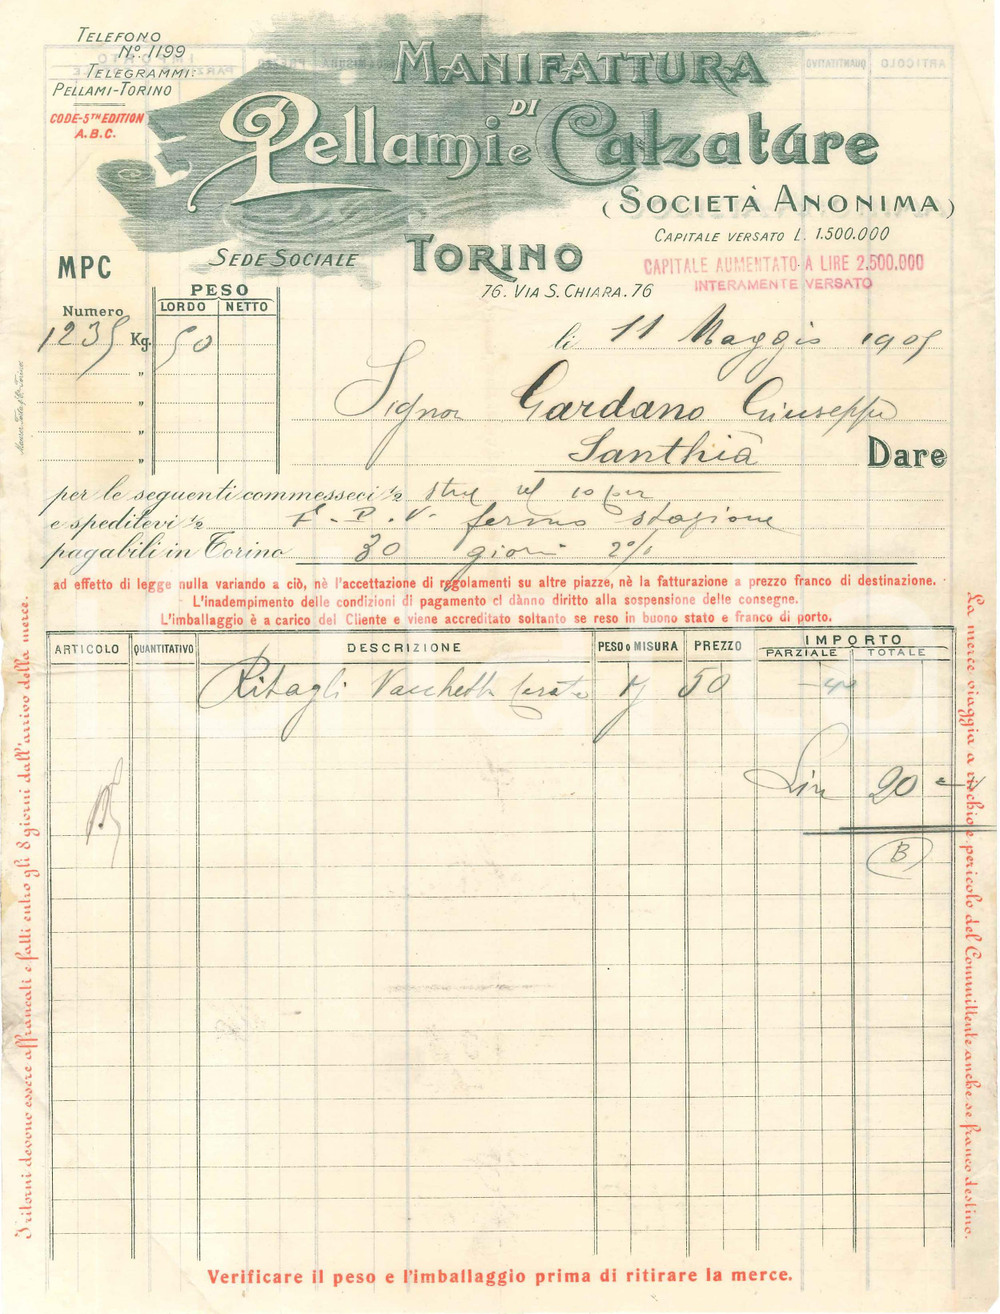 TELEFONO
N.º 1199
TELEGRAMMI:
PELLAMI-TORINO
CODE-5TH EDITION
A.B.C.
MANIFATTURA
DI
Pellami e Calzature
(SOCIETÀ ANONIMA)
CAPITALE VERSATO L. 1.500.000
CAPITALE AUMENTATO A LIRE 2.500.000
INTERAMENTE VERSATO
SEDE SOCIALE TORINO
76. VIA S. CHIARA. 76
MPC
Numero
PESO
LORDO NETTO
1235 Kg. 50
li 11 Maggio 1905
Signor Gardano Giuseppe
Santhià Dare
per le seguenti commesseci
e speditevi fermo stazione
pagabili in Torino 30 giorni 2%
ad effetto di legge nulla variando a ciò, nè l'accettazione di regolamenti su altre piazze, nè la fatturazione a prezzo franco di destinazione.
L'inadempimento delle condizioni di pagamento ci dànno diritto alla sospensione delle consegne.
L'imballaggio è a carico del Cliente e viene accreditato soltanto se reso in buono stato e franco di porto.
ARTICOLO QUANTITATIVO DESCRIZIONE PESO o MISURA PREZZO IMPORTO
PARZIALE TOTALE
Ritagli Vacchetta 50
Lire 20
B
I ritorni devono essere affrancati e fatti entro gli 8 giorni dall'arrivo della merce.
La merce viaggia a rischio e pericolo del Committente anche se franco destino.
Verificare il peso e l'imballaggio prima di ritirare la merce.